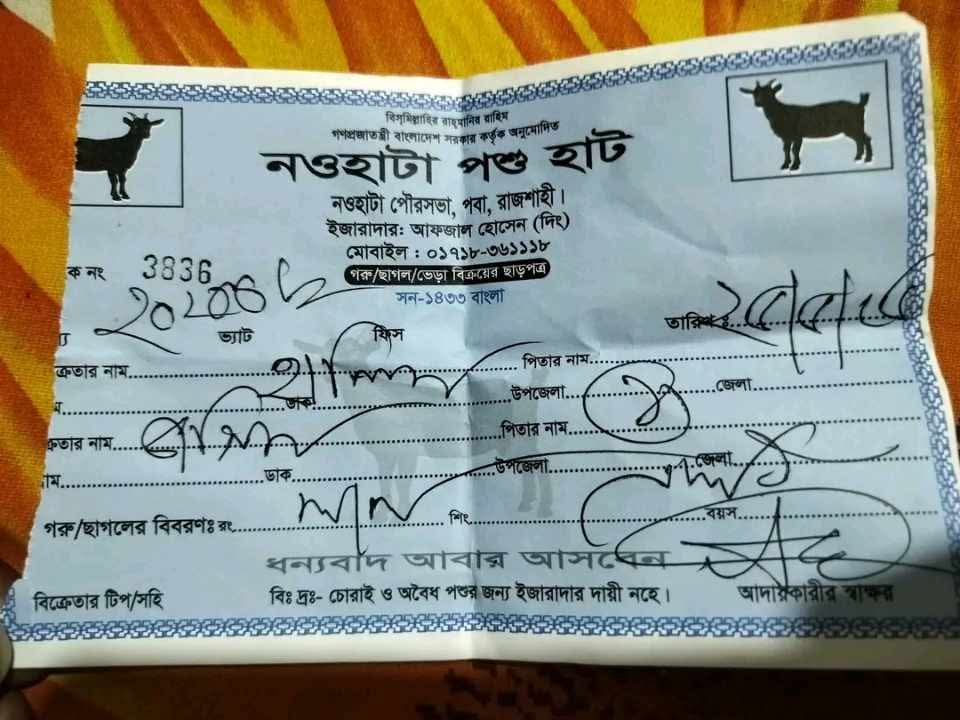 বিসমিল্লাহির রাহমানির রাহিম
গণপ্রজাতন্ত্রী বাংলাদেশ সরকার কর্তৃক অনুমোদিত
নওহাটা পশু হাট
নওহাটা পৌরসভা, পবা, রাজশাহী।
ইজারাদার: আফজাল হোসেন (দিং)
মোবাইল : ০১৭১৮-৩৬১১১৮
গরু/ছাগল/ভেড়া বিক্রয়ের ছাড়পত্র
ক নং 3836
সন-১৪৩৩ বাংলা
ভ্যাট ফিস তারিখ ঃ
ক্রেতার নাম পিতার নাম
ডাক উপজেলা জেলা
ক্রেতার নাম পিতার নাম
ডাক উপজেলা জেলা
গরু/ছাগলের বিবরণঃ রং লাল শিং বয়স
ধন্যবাদ আবার আসবেন
বিক্রেতার টিপ/সহি বিঃ দ্রঃ- চোরাই ও অবৈধ পশুর জন্য ইজারাদার দায়ী নহে। আদায়কারীর স্বাক্ষর